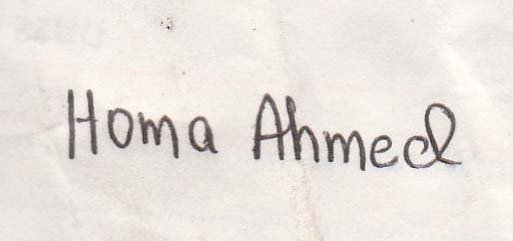 Homa Ahmed